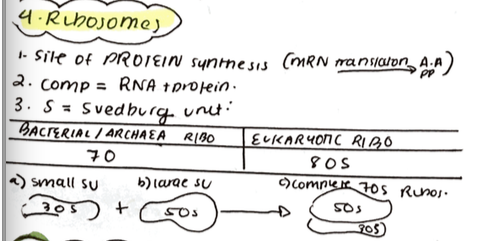 4. Ribosomes
1- Site of PROTEIN synthesis (mRN translation A.A)
PP
2. Comp = RNA + protein.
3. S = Svedburg unit:
BACTERIAL / ARCHAEA RIBO EUKARYOTIC RIBO
70 80S
a) small SU b) large SU c) complete 70S Ribos.
30S + 50s 50s
30S